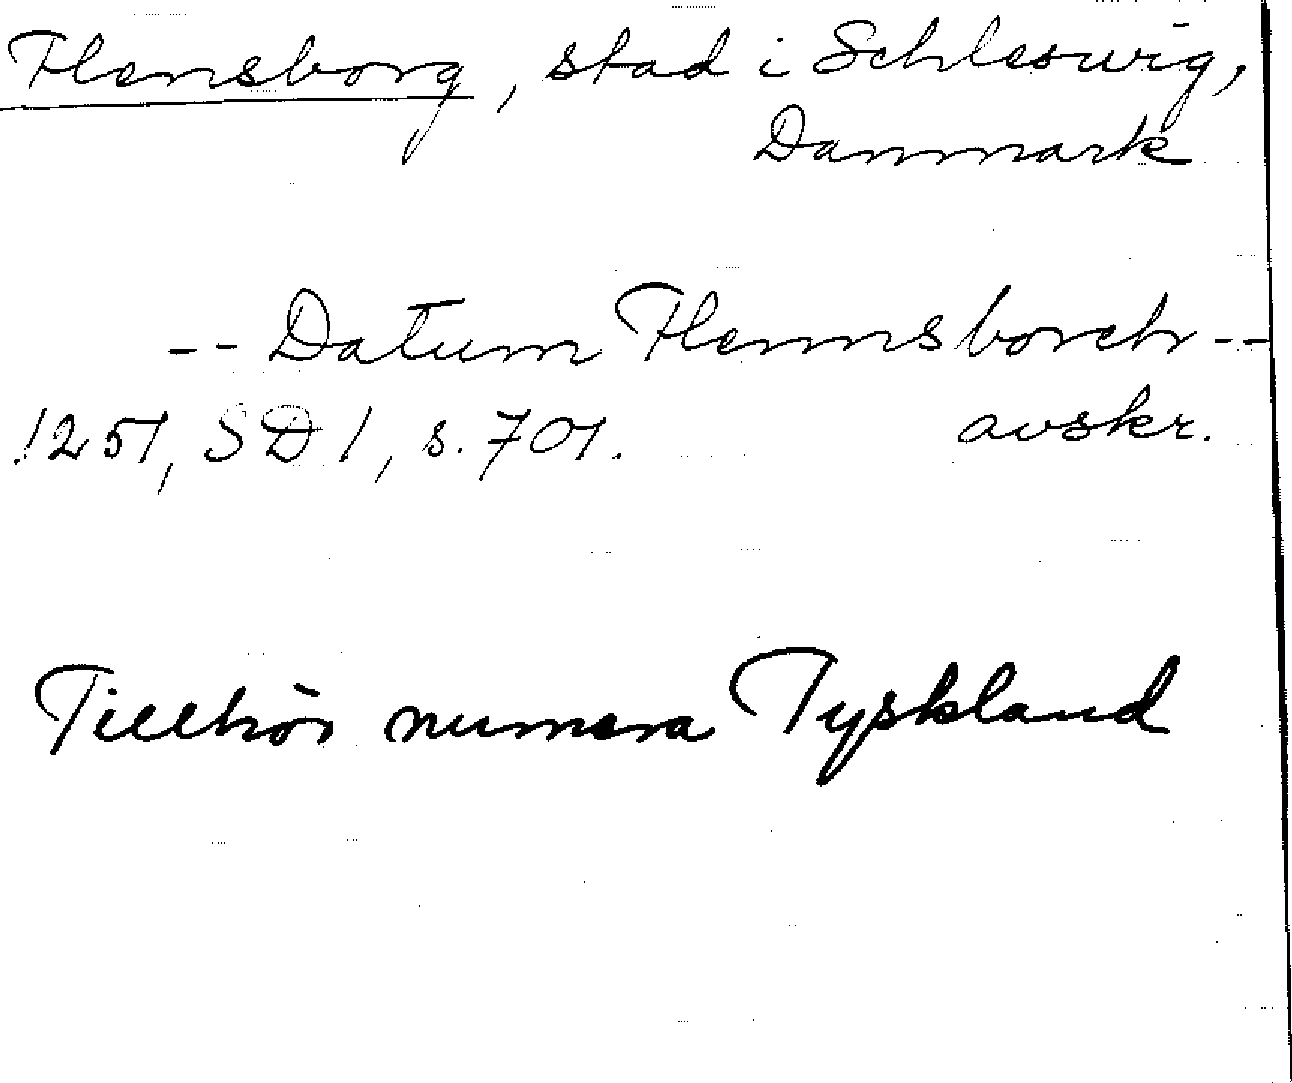 Flensborg, stad i Schleswig,
Danmark
-- Datum Flennsborch --
1251, SD 1, s. 701. avskr.
Tillhör numera Tyskland